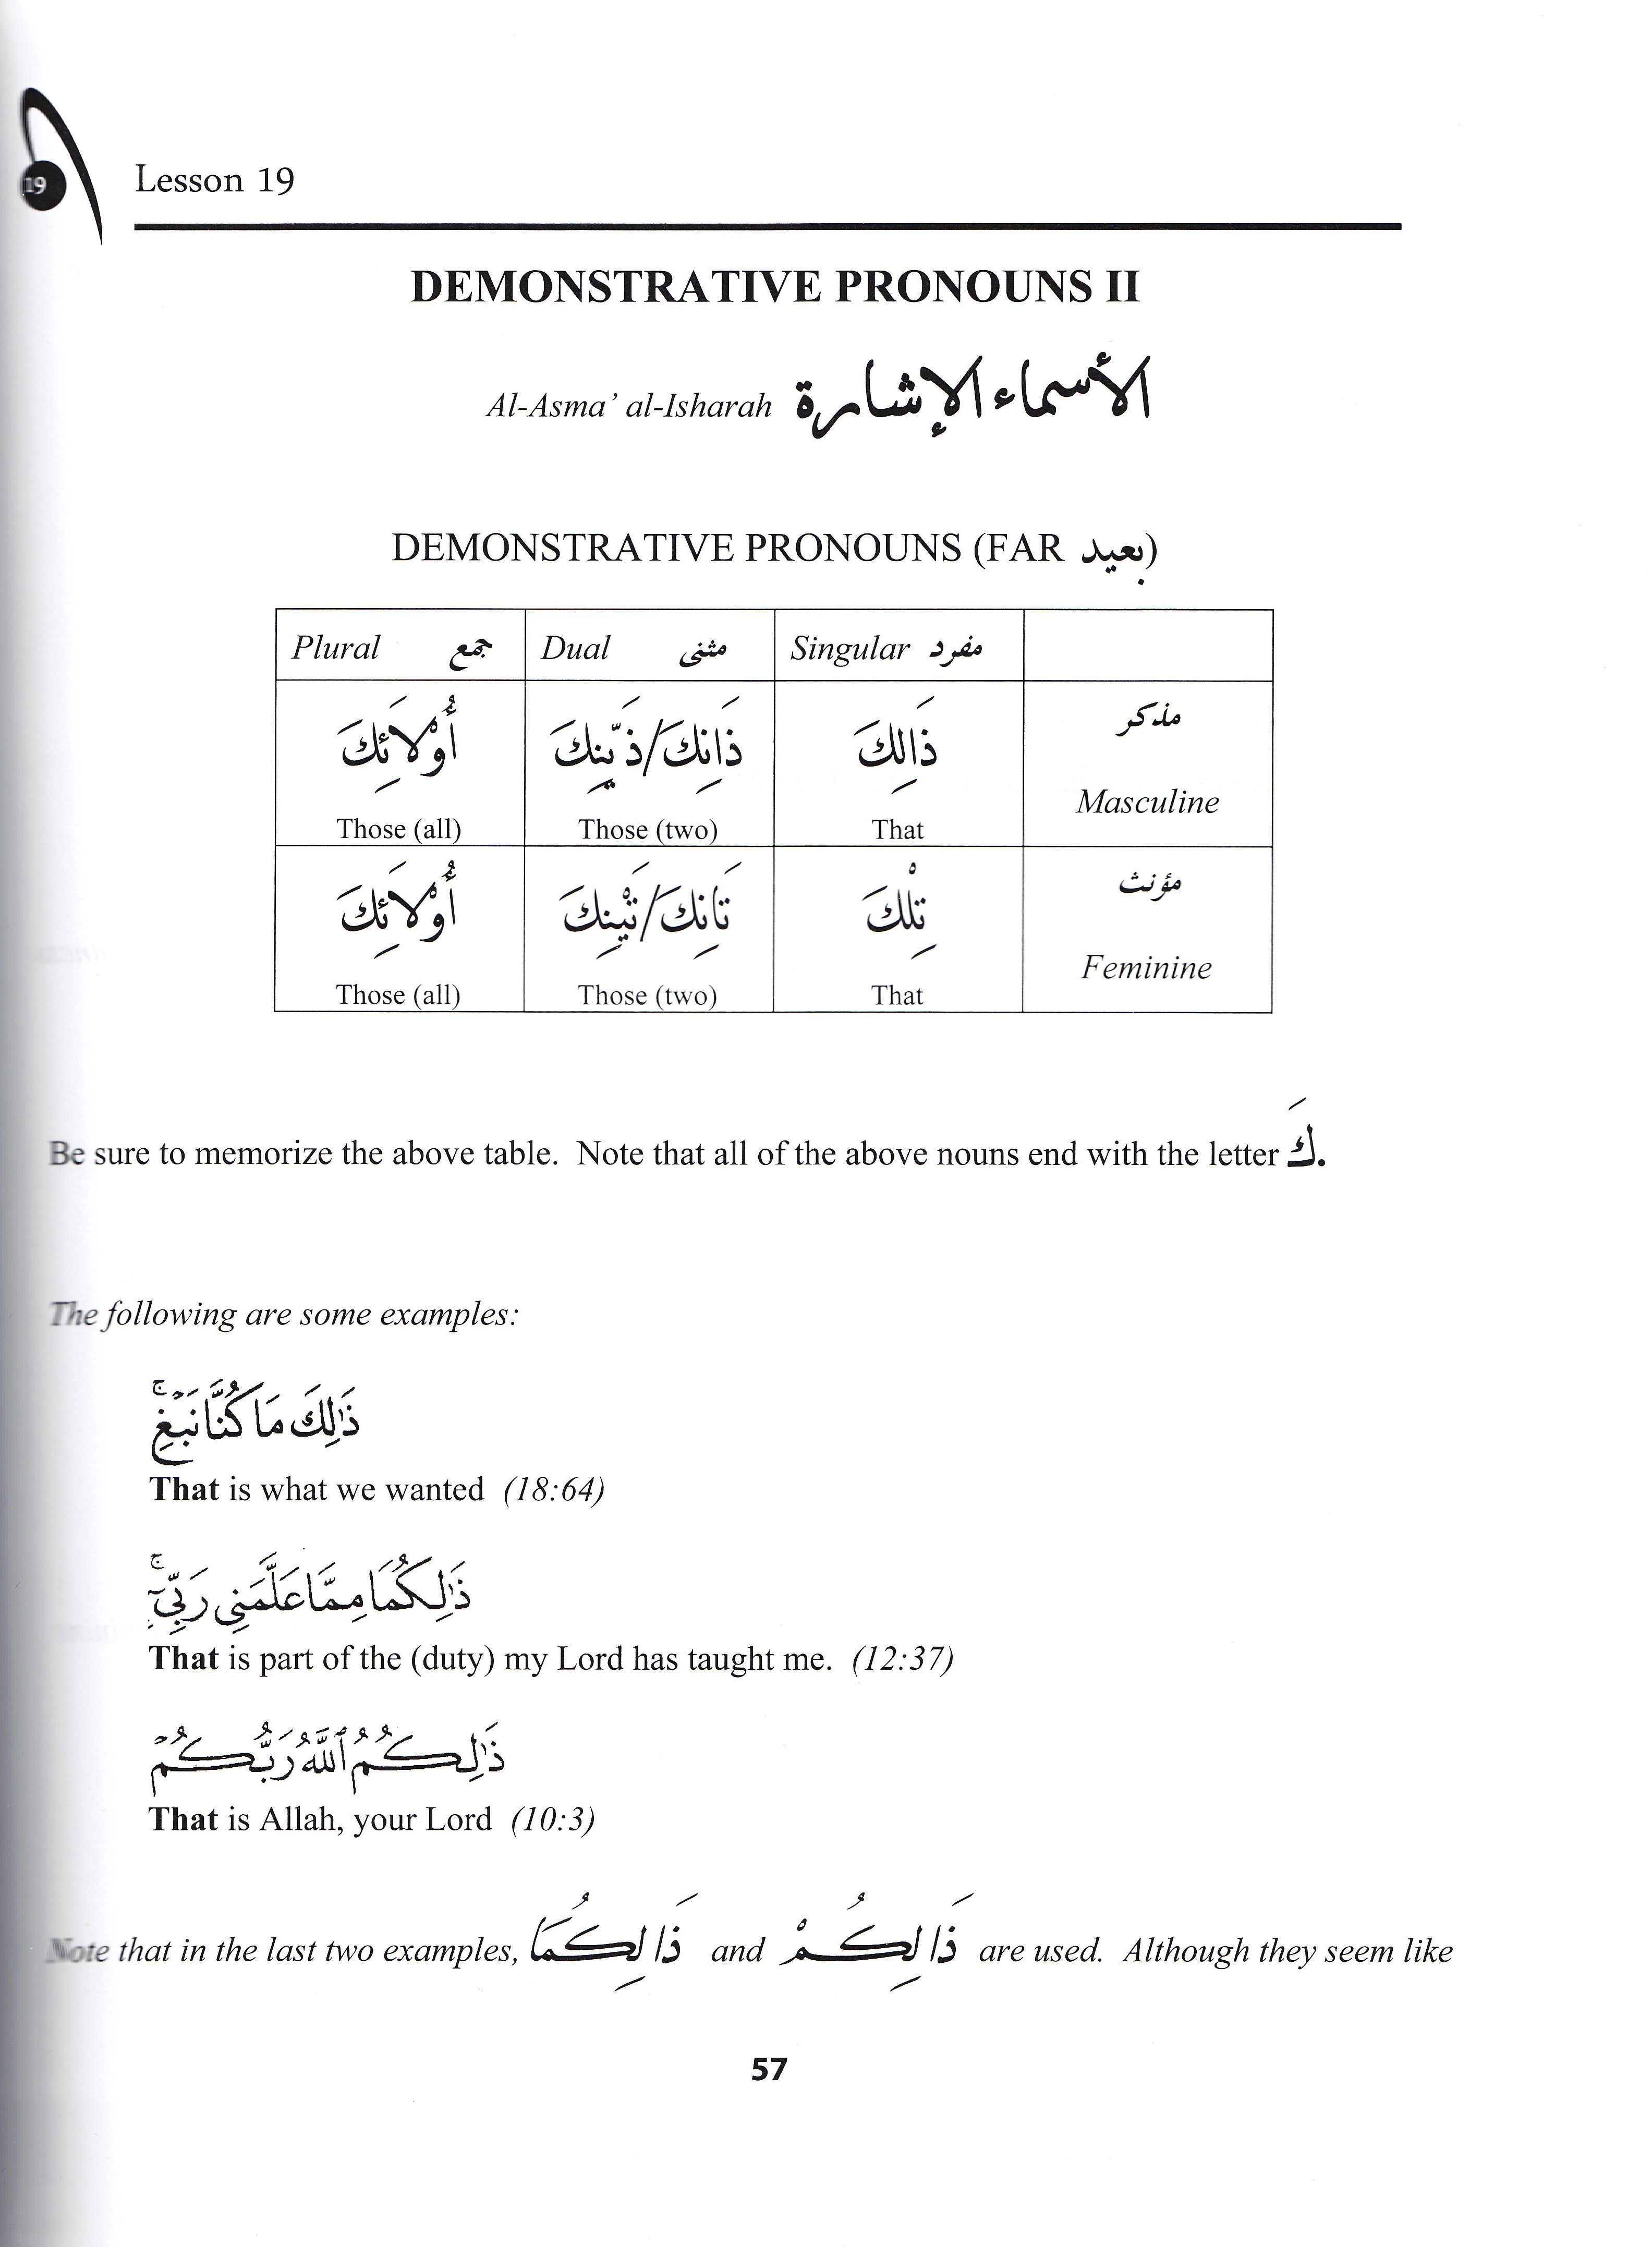 19
Lesson 19
DEMONSTRATIVE PRONOUNS II
Al-Asma’ al-Isharah الأسماء الإشارة
DEMONSTRATIVE PRONOUNS (FAR بعيد)
Plural جمع Dual مثنى Singular مفرد
أُوْلَائِكَ ذَانِكَ/ذَيّنِكَ ذَالِكَ مذكر
Those (all) Those (two) That Masculine
أُوْلَائِكَ تَانِكَ/تَيْنِكَ تِلْكَ مؤنث
Those (all) Those (two) That Feminine
Be sure to memorize the above table. Note that all of the above nouns end with the letter كَ.
The following are some examples:
ذَٰلِكَ مَا كُنَّا نَبۡغِۚ
That is what we wanted (18:64)
ذَٰلِكُمَا مِمَّا عَلَّمَنِى رَبِّىٓۚ
That is part of the (duty) my Lord has taught me. (12:37)
ذَٰلِكُمُ ٱللَّهُ رَبُّكُمۡ
That is Allah, your Lord (10:3)
Note that in the last two examples, ذَالِكُمَا and ذَالِكُمْ are used. Although they seem like
57